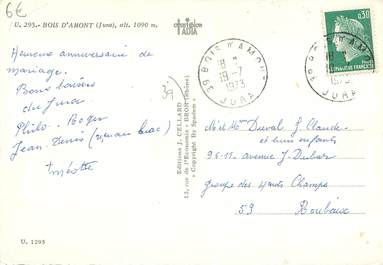 6€
U. 295.- BOIS D'AMONT (Jura), alt. 1090 m.
Heureux anniversaire de
mariage.
Bons baisers
du Jura
Philo. Roger
Jean-Denis
39
Editions J. CELLARD
12, rue de l'Economie - BRON (Rhône)
Copyright By Spadem
39 BOIS D'AMONT
18 H
19-7
1973
JURA
0,30
FRANÇAISE
39 BOIS D'AMONT
JURA
Mr et Mme Duval J. Claude
et leurs enfants
96-11 avenue J. Dubar
groupe des Hauts Champs
59 Roubaix
U. 1295